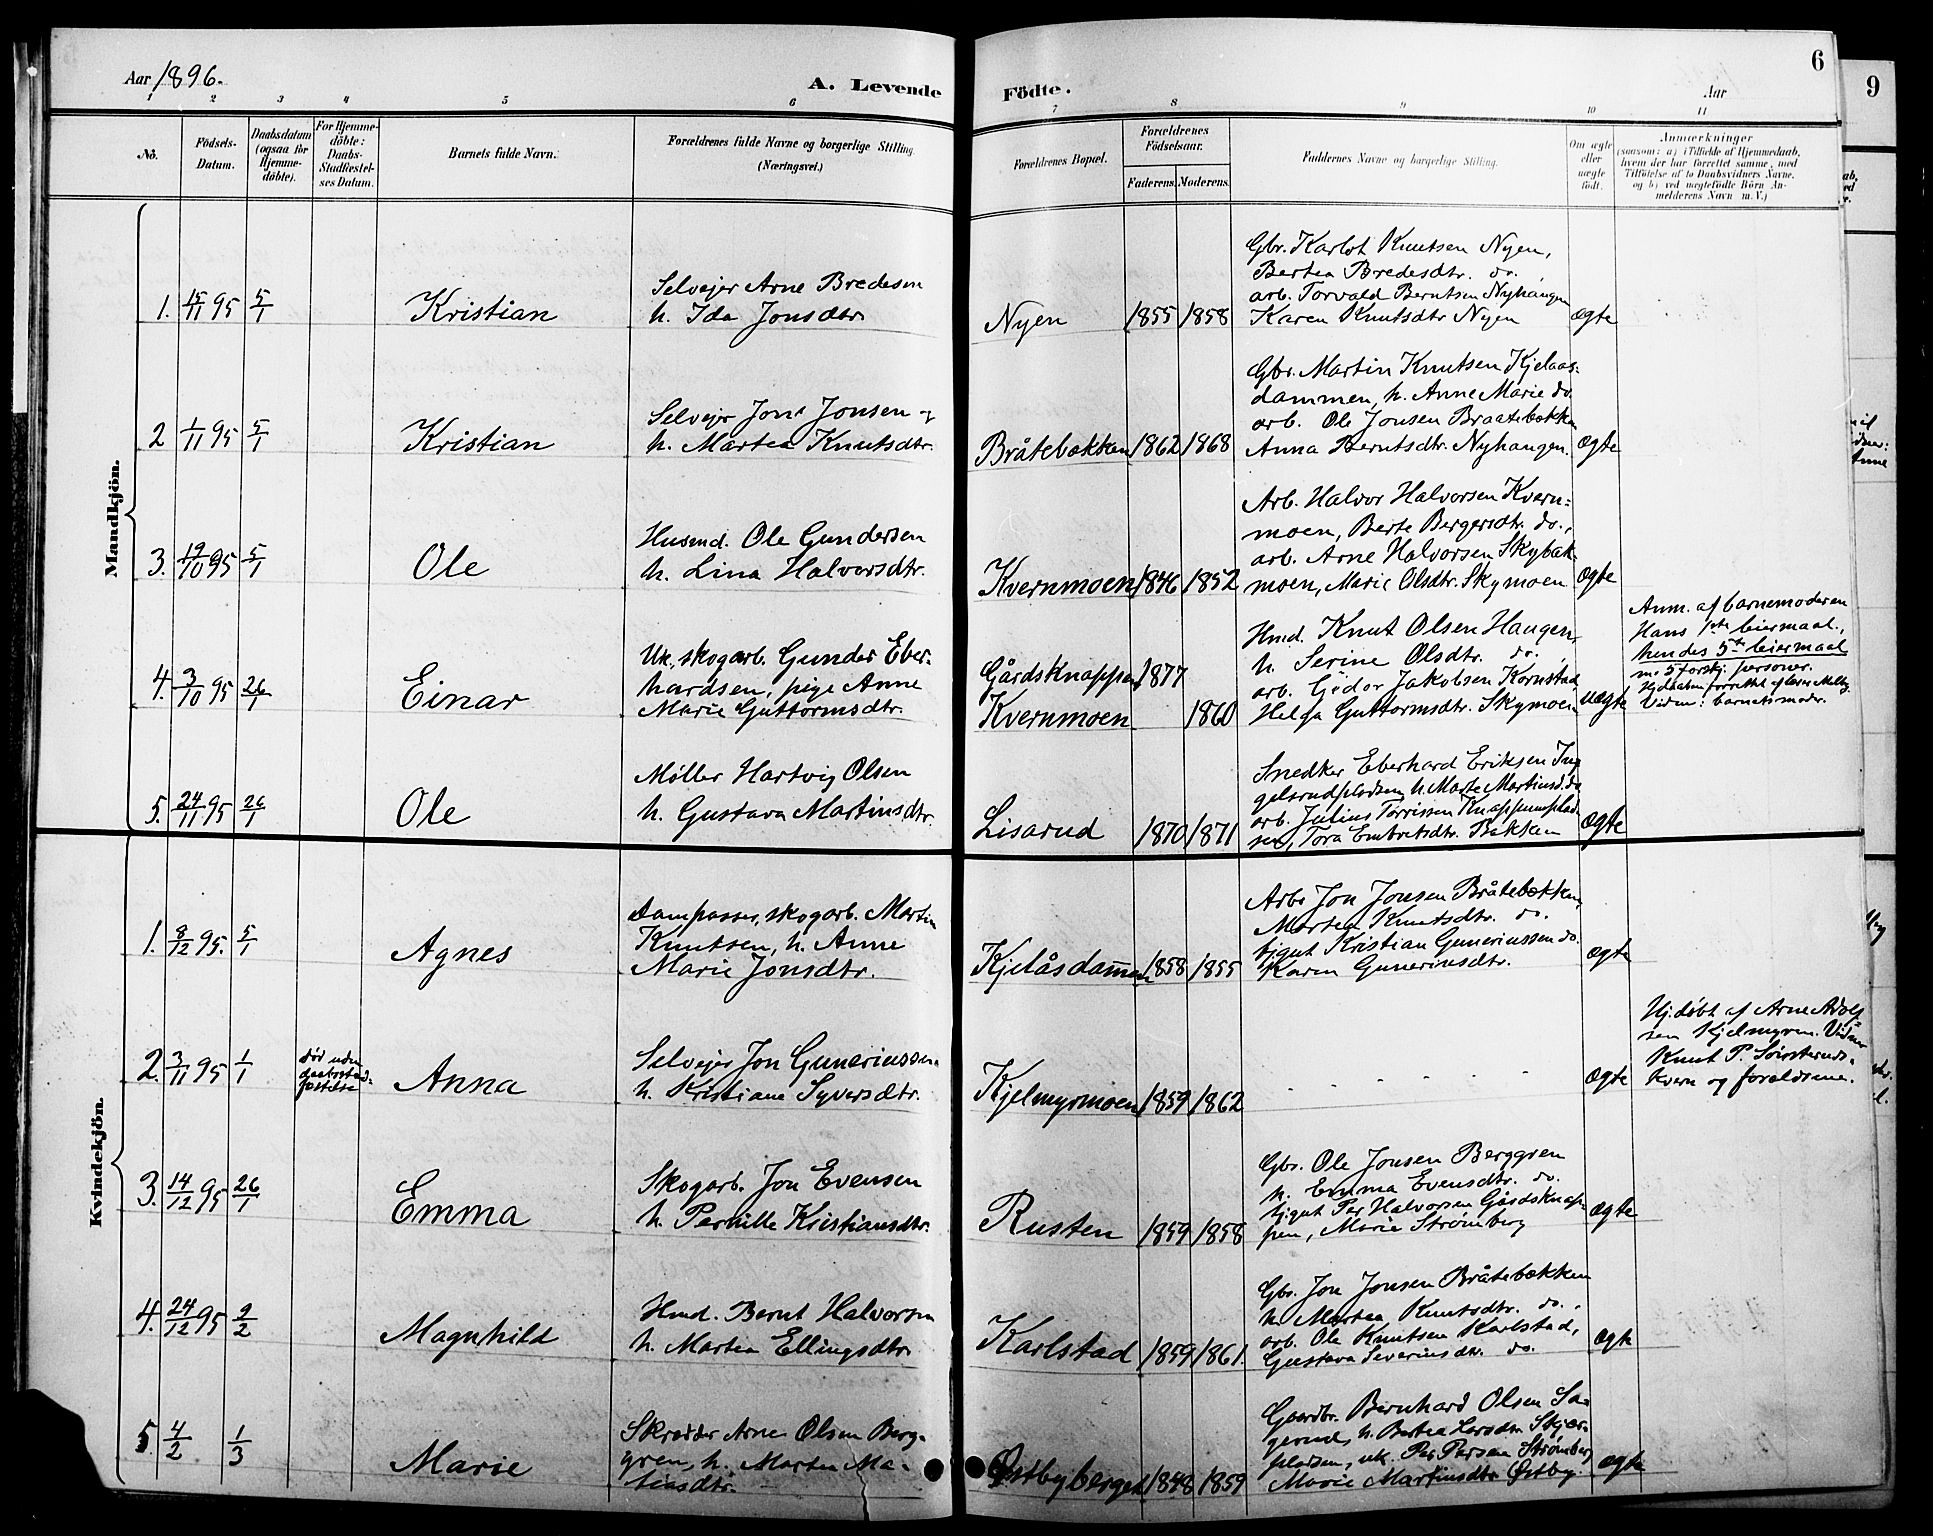 Aar 1896.
A. Levende Födte.
Aar
6
9
1 2 3 4 5 6 7 8 9 10 11
No.
Födsels-Datum.
Daabsdatum (ogsaa for Hjemme-döbte).
For Hjemme-döbte: Daabs-Stadfæstel-ses Datum.
Barnets fulde Navn.
Forældrenes fulde Navne og borgerlige Stilling.
(Næringsvei.)
Forældrenes Bopæl.
Forældrenes Födselsaar.
Faderens. Moderens.
Faddernes Navne og borgerlige Stilling.
Om ægte eller uægte födt.
Anmærkninger
(saasom: a) i Tilfælde af Hjemmedaab,
hvem der har forrettet samme, med
Tilföielse af to Daabsvidners Navne,
og b) ved uægtefödte Börn An-
melderens Navn m. V.)
Mandkjön.
1. 15/11 95 5/1 Kristian
Selvejer Arne Bredesen
h. Ida Jonsdtr.
Nyen 1855 1858
Gbr. Karlot Knutsen Nyen,
Bertea Bredesdtr. do.
arb. Torvald Berntsen Nyhangen
Karen Knutsdtr Nyen
ægte
2 1/11 95 5/1 Kristian
Selvejer Jon Jonsen og
h. Martea Knutsdtr.
Bråtebækken 1862 1868
Gbr. Martin Knutsen Kjelaas-
dammen, h. Anne Marie do.
arb. Ole Jonsen Braatebækken
Anna Berntsdtr. Nyhangen.
ægte
3. 19/10 95 5/1 Ole
Husmd. Ole Gundersen
h. Lina Halvorsdtr.
Kvernmoen 1846 1852
Arb. Halvor Halvorsen Kvern-
moen, Berte Bergersdtr. do.,
arb. Arne Halvorsen Skybak-
moen, Marie Olsdtr. Skymoen
ægte
4. 3/10 95 26/1 Einar
Uk. skogarb. Gunder Eber-
hardsen, pige Anne
Marie Guttormsdtr.
Gårdsknappen 1877
Kvernmoen 1860
Hmd. Knut Olsen Haugen,
h. Serine Olsdtr. do.,
arb. Gedor Jakobsen Kornstad,
Helga Guttormsdtr. Skymoen
uægte
Anm. af barnemoderen
Hans 1ste leiermaal,
hendes 5te leiermaal
m. 5 forskj. personer.
Vidn: barnets moder.
5. 24/11 95 26/1 Ole
Møller Hartvig Olsen
h. Gustava Martinsdtr.
Lisarud 1870 1871
Snedker Eberhard Eriksen In-
gelsrudpladsen, h. Marte Martinsd. do
arb. Julius Torrissen Knappumplad-
sen, Tora Embretsdtr. Bakken
ægte
Kvindekjön.
1. 8/12 95. 5/1 Agnes
Dampasser, skogarb. Martin
Knutsen, h. Anne
Marie Jonsdtr.
Kjelåsdammen 1858 1855
Arb. Jon Jonsen Bråtebækken,
Martea Knutsdtr. do.
tjgut Kristian Gunerinssen do.
Karen Guneriusdtr.
ægte
2. 3/11 95 1/1
død uden
daabsstad-
fæstelse
Anna
Selvejer Jon Guneriussen
h. Kristiane Syversdtr.
Kjelmyrmoen 1859 1862
ægte
Hj. døbt af Arne Adolf-
sen Kjelmyren. Vidner
Knut P. Sørsteruds-
kvern og forældrene.
3. 14/12 95 26/1 Emma
Skogarb. Jon Evensen
h. Pernille Kristiansdtr.
Rusten 1859 1858
Gbr. Ole Jonsen Berggren
h. Emma Evensdtr. do.
tjgut Per Halvorsen Gårdsknap-
pen, Marie Strømberg
ægte
4. 24/12 95 2/2 Magnhild
Hmd. Bernt Halvorsen
h. Martea Ellingsdtr.
Karlstad 1859 1861.
Gbr. Jon Jonsen Bråtebækken
h. Martea Knutsdtr. do.,
arb. Ole Knutsen Karlstad,
Gustava Severinsdtr. do.
ægte
5. 4/2 1/3 Marie
Skrædder Arne Olsen Berg-
gren, h. Marten Ma-
tinsdtr.
Østbyberget 1848 1859
Gaardbr. Bernhard Olsen Sa-
gerud, h. Bertea Larsdtr Skjær-
pladsen, uk. Per Persen Strømberg
Marie Martinsdtr Østby.
ægte